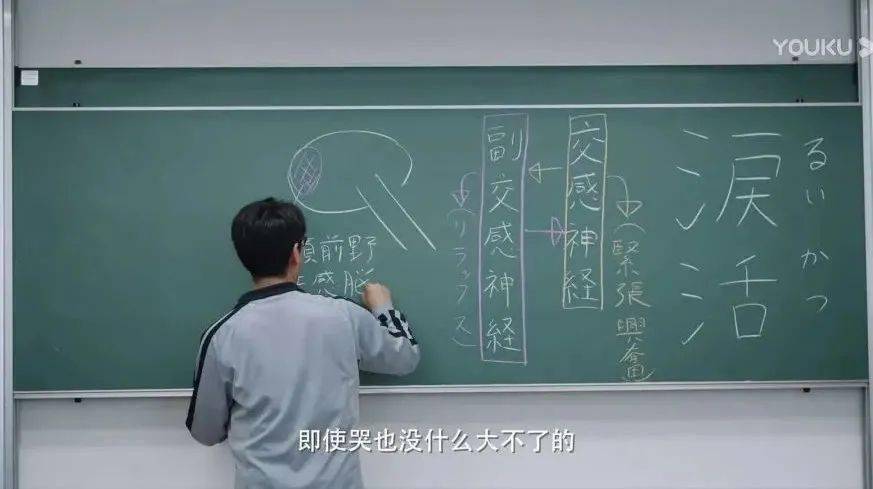 YOUKU
るいかつ
涙活
交感神経
(緊張 興奮
副交感神経
(リラックス)
前野
感脳
即使哭也没什么大不了的